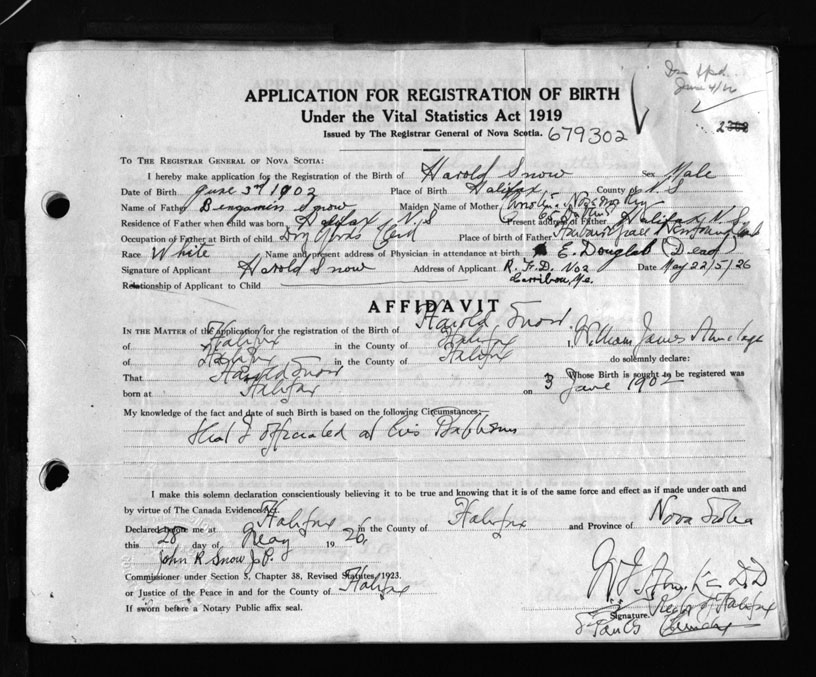 June 4/26
APPLICATION FOR REGISTRATION OF BIRTH
Under the Vital Statistics Act 1919
Issued by The Registrar General of Nova Scotia. 679302
TO THE REGISTRAR GENERAL OF NOVA SCOTIA:
I hereby make application for the Registration of the Birth of Harold Snow Sex Male
Date of Birth June 3rd 1902 Place of Birth Halifax County of N.S
Name of Father Bengamin Snow Maiden Name of Mother
Residence of Father when child was born Halifax N.S Present address of Father Halifax N.S.
Occupation of Father at Birth of child Dry Goods Place of birth of Father Harbour Grace Newfoundland
Race White Name and present address of Physician in attendance at birth E. Douglas (Dead)
Signature of Applicant Harold Snow Address of Applicant R.F.D. No 2 Date May 22/5/26
Carribou, Me.
Relationship of Applicant to Child
AFFIDAVIT
IN THE MATTER of the application for the registration of the Birth of Harold Snow.
of Halifax in the County of Halifax I, William James
of Halifax in the County of Halifax do solemnly declare:
That Harold Snow Whose Birth is sought to be registered was
born at Halifax on 3 June 1902
My knowledge of the fact and date of such Birth is based on the following Circumstances:—
that I officiated at his Baptism
I make this solemn declaration conscientiously believing it to be true and knowing that it is of the same force and effect as if made under oath and
by virtue of The Canada Evidence Act.
Declared before me at Halifax in the County of Halifax and Province of Nova Scotia
this 28 day of May 1926,
John R Snow J.P.
Commissioner under Section 5, Chapter 38, Revised Statutes, 1923.
or Justice of the Peace in and for the County of Halifax
If sworn before a Notary Public affix seal.
Signature. Rector of Halifax